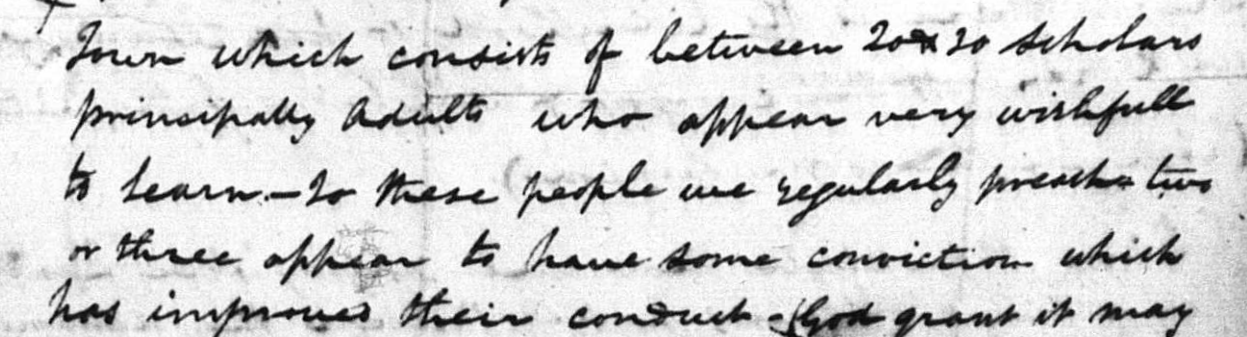 Town which consists of between 20 & 30 Scholars
principally Adults who appear very wishfull
to learn – To these people we regularly preach – two
or three appear to have some conviction which
has improved their conduct – God grant it may